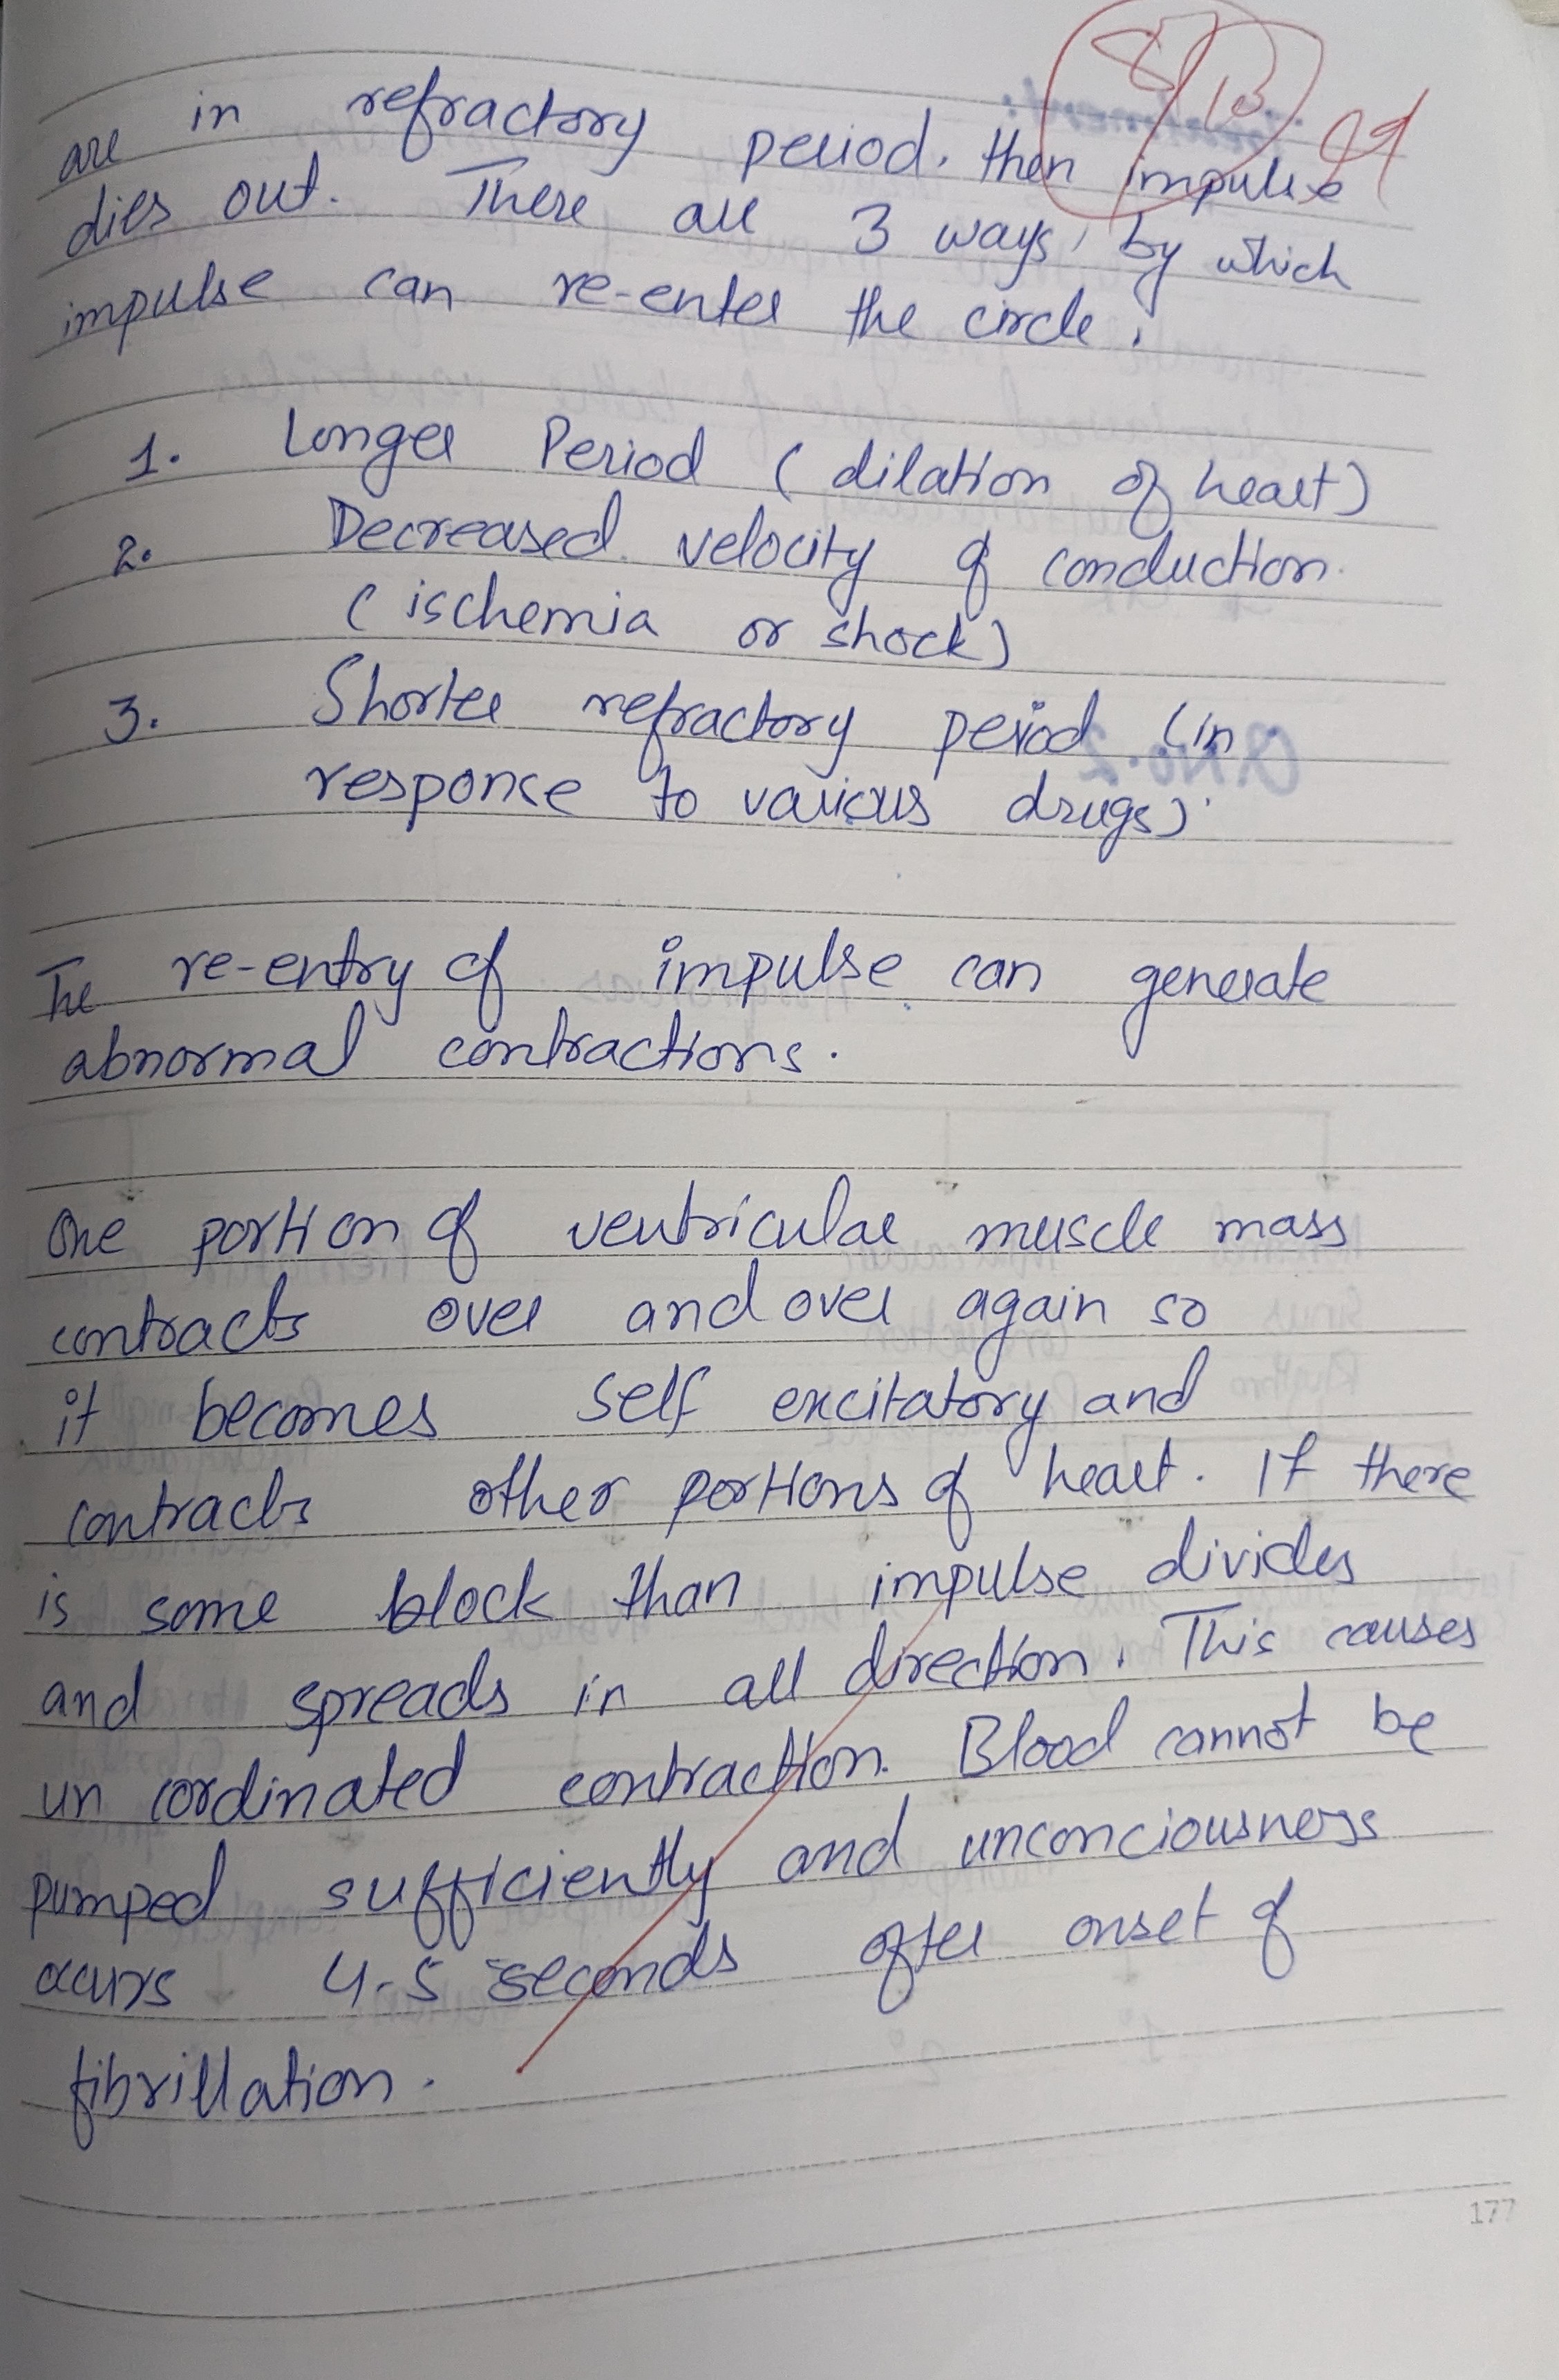 8/13
are in refractory period. then impulse
dies out. There are 3 ways, by which
impulse can re-enter the circle.
1. Longer Period (dilation of heart)
2. Decreased velocity of conduction.
(ischemia or shock)
3. Shorter refractory period (in
response to various drugs).
The re-entry of impulse can generate
abnormal contractions.
One portion of ventricular muscle mass
contracts over and over again so
it becomes self excitatory and
contracts other portions of heart. If there
is some block than impulse divides
and spreads in all direction. This causes
un cordinated contraction. Blood cannot be
pumped sufficiently and unconciousness
occurs 4-5 seconds after onset of
fibrillation.
177